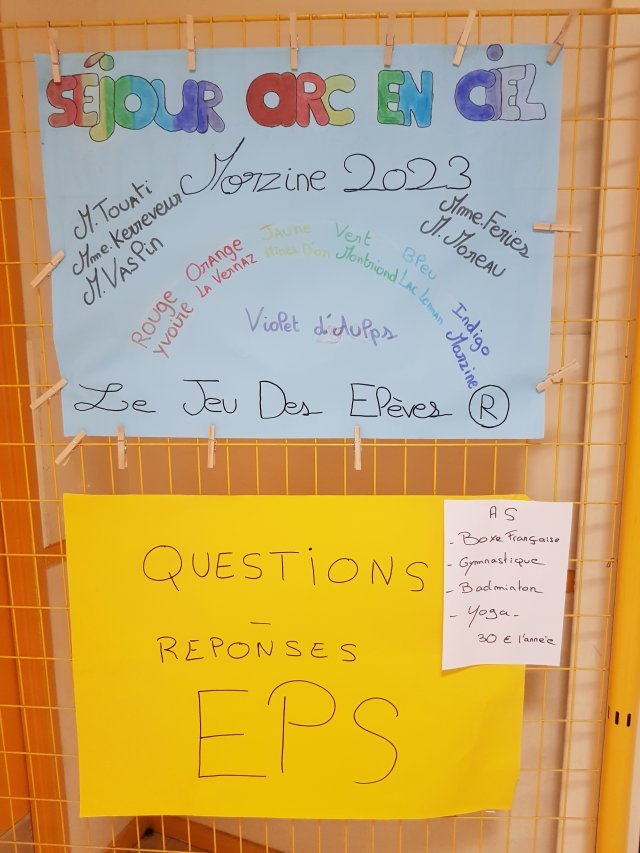 SÉJOUR ARC EN CIEL
Morzine 2023
M. Touati
Mme. Kerreveur
M. Vaspin
Mme. Feries
M. Moreau
Rouge
Yvoire
Orange
La Vernaz
Jaune
Mines D'or
Vert
Montriond
Bleu
Lac Leman
Indigo
Morzine
Violet d'Aulps
Le Jeu Des Elèves ®
QUESTIONS
-
REPONSES
EPS
AS
- Boxe Française
- Gymnastique
- Badminton
- Yoga -
30 € l'année